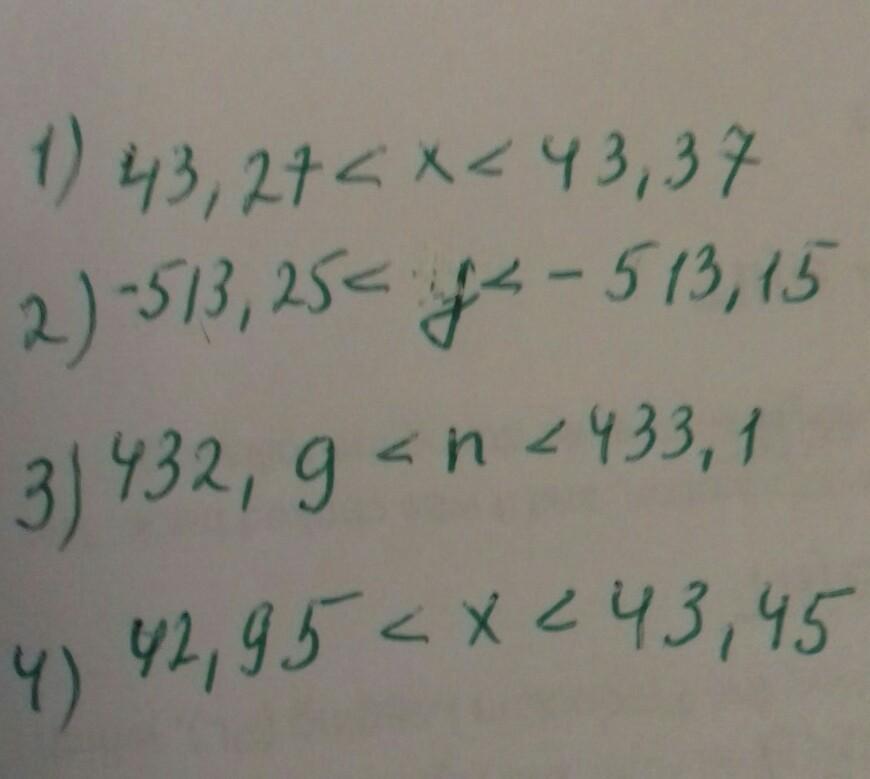 1) 43,27 < x < 43,37
2) -513,25 < y < - 513,15
3) 432, 9 < n < 433,1
4) 42,95 < x < 43,45